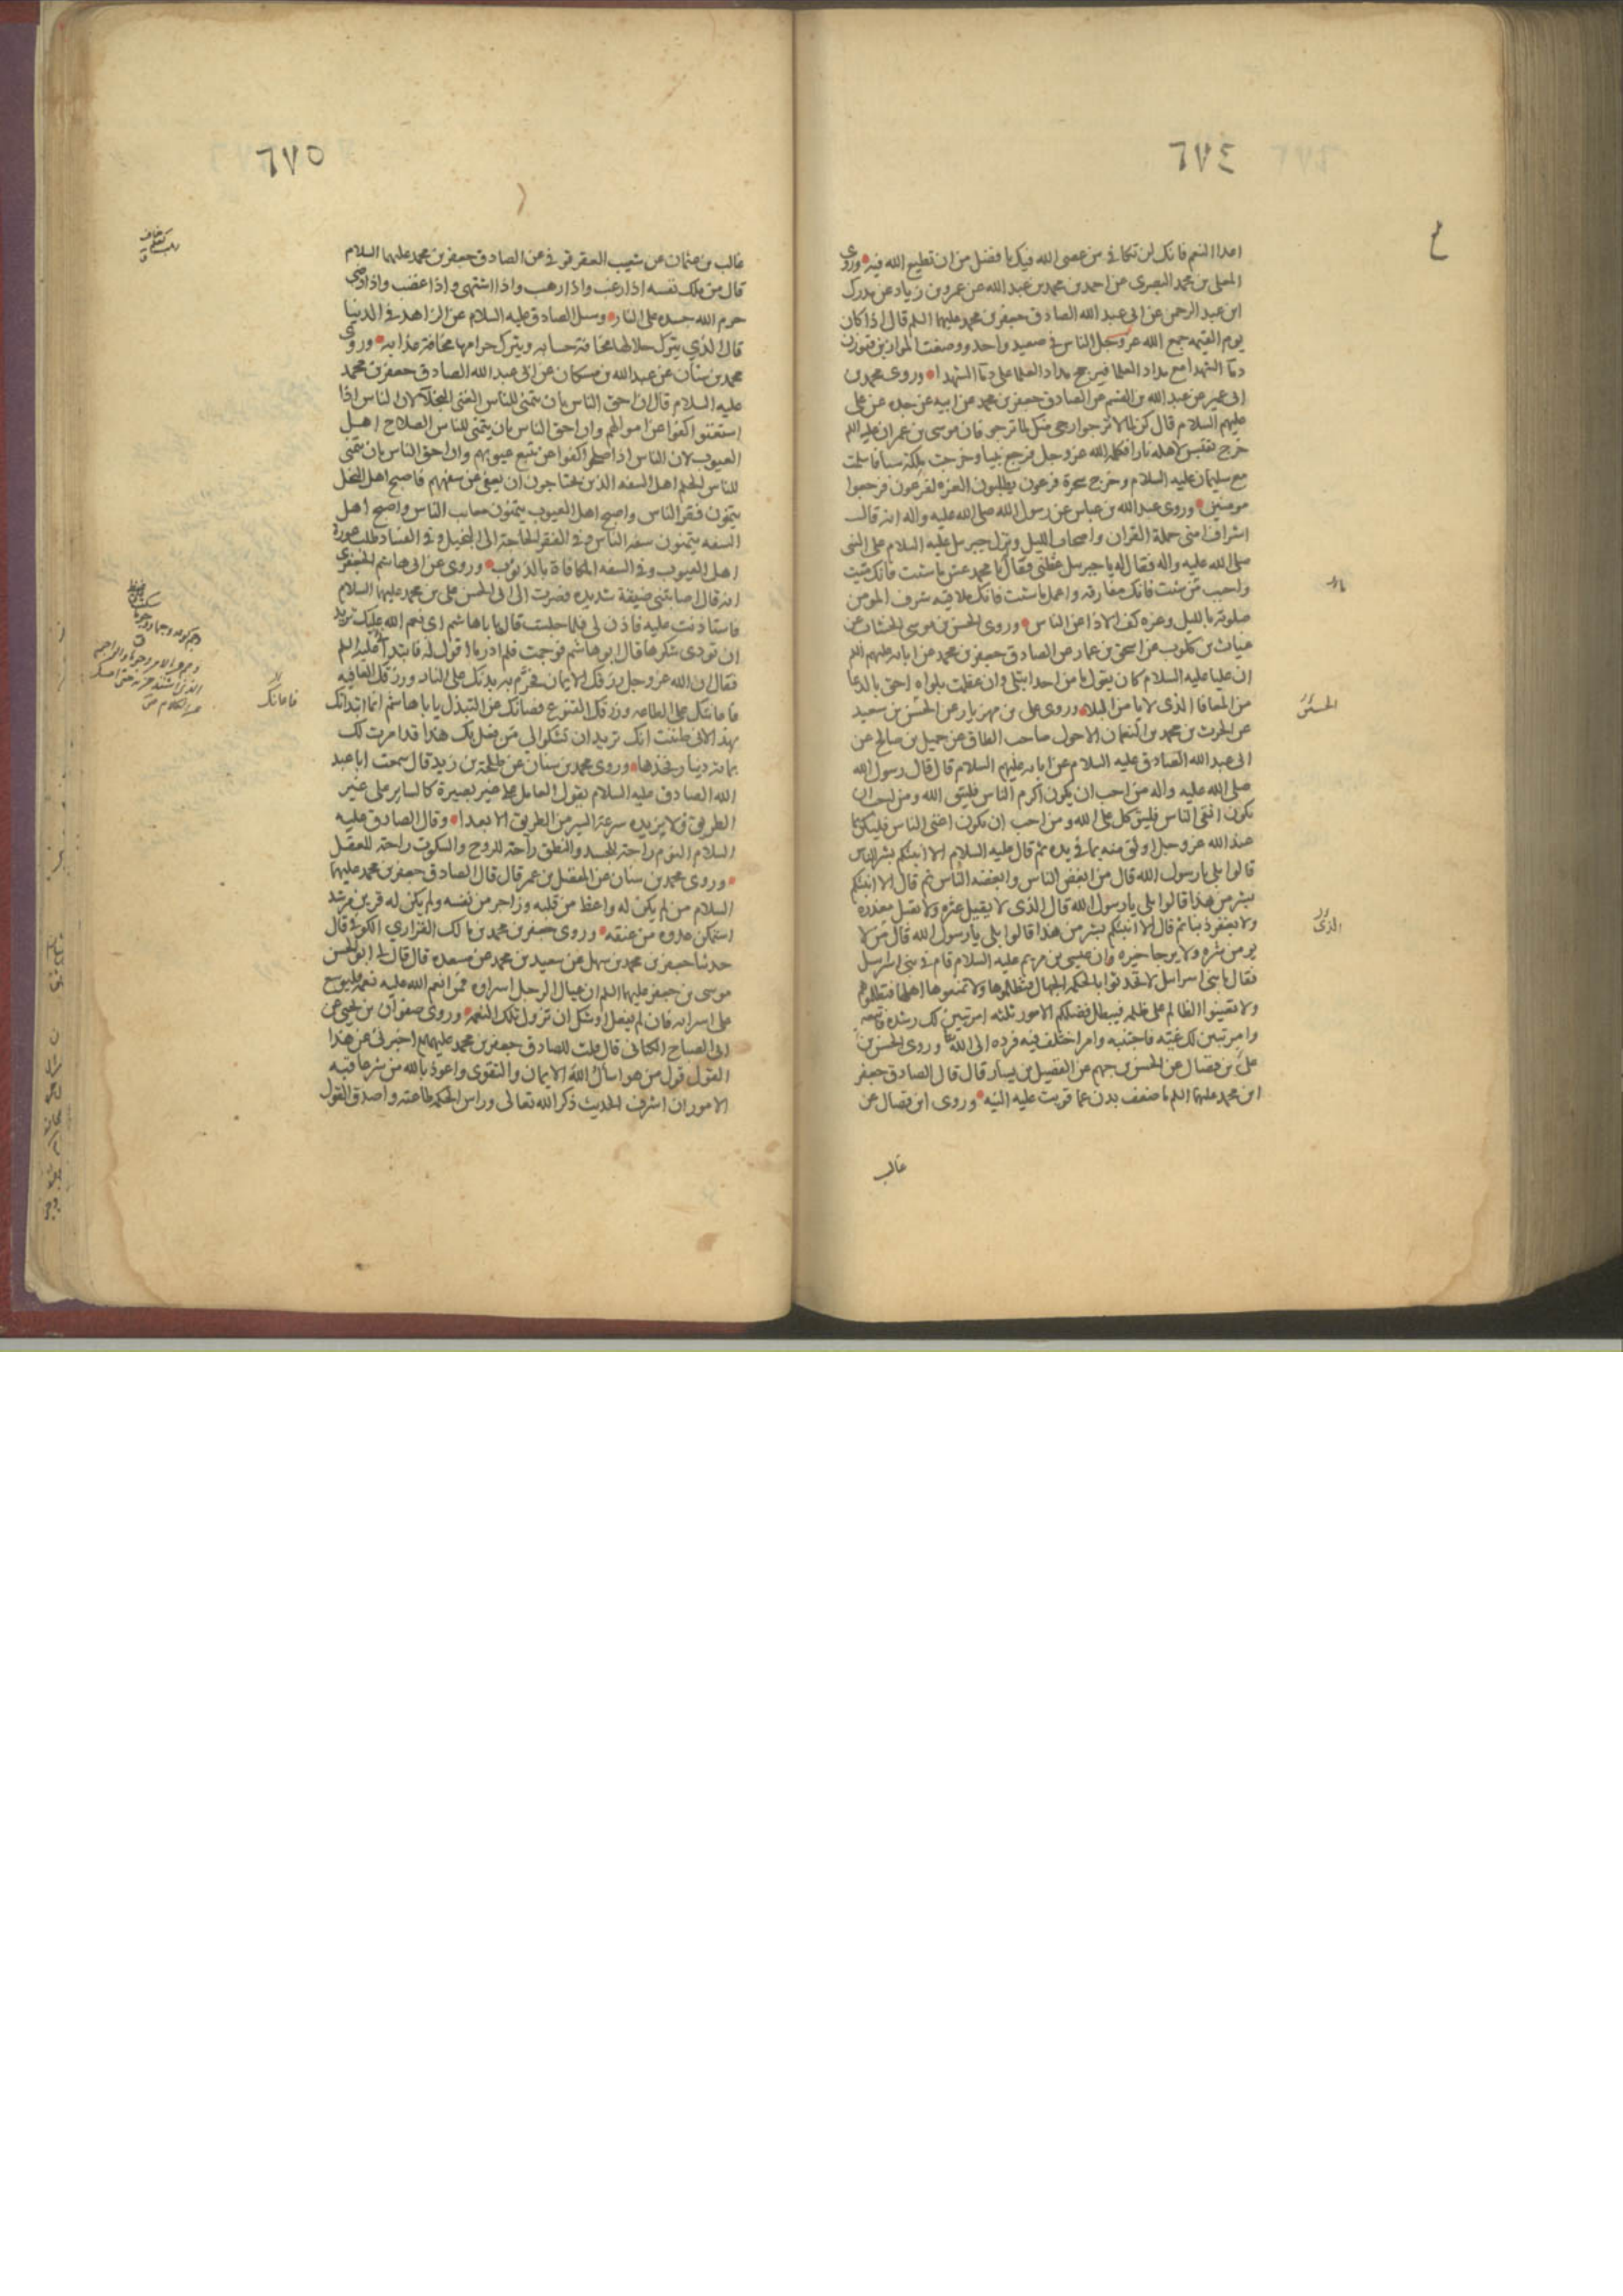 ٦٧٤
اعدا النعم فانك لن تكافى من عصى الله فيك بافضل من ان تطيع الله فيه وروى
المعلى بن محمد البصرى عن احمد بن محمد بن عبد الله عن عمرو بن زياد عن مدرك
ابن عبد الرحمن عن ابى عبد الله الصادق جعفر بن محمد عليهما السلم قال اذا كان
يوم القيمه جمع الله عز وجل الناس فى صعيد واحد ووضعت الموازين فتوزن
دمآ الشهدا مع مداد العلما فيرجح مداد العلما على دمآ الشهدا وروى محمد بن
ابى عمير عن عبد الله بن القسم عن الصادق جعفر بن محمد عن ابيه عن جده عن على
عليهم السلام قال كن لما لا ترجوا ارجى منك لما ترجو فان موسى بن عمران عليه السلم
خرج يقتبس لاهله نارا فكلمه الله عز وجل فرجع نبيا وخرجت ملكة سبا فاسلمت
مع سليمان عليه السلام وخرج سحرة فرعون يطلبون العزه لفرعون فرجعوا
مومنين وروى عبد الله بن عباس عن رسول الله صلى الله عليه واله انه قال
اشراف امتى حملة القران واصحاب الليل ونزل جبرئيل عليه السلام على النبى
صلى الله عليه واله فقال له يا جبرئيل عظنى فقال يا محمد عش ما شئت فانك ميت
واحبب من شئت فانك مفارقه واعمل ما شئت فانك ملاقيه شرف المومن
صلوته بالليل وعزه كف الاذا عن الناس وروى الحسن بن موسى الخشاب عن
غياث بن كلوب عن اسحق بن عمار عن الصادق جعفر بن محمد عن ابايه عليهم السلم
ان عليا عليه السلام كان يقول ما من احد ابتلى وان عظمت بلواه احق بالدعا
من المعافا الذى لا يامن البلا وروى على بن مهزيار عن الحسن بن سعيد
عن الحرث بن محمد بن النعمان الاحول صاحب الطاق عن جميل بن صالح عن
ابى عبد الله الصادق عليه السلام عن ابايه عليهم السلام قال قال رسول الله
صلى الله عليه واله من احب ان يكون اكرم الناس فليتق الله ومن احب ان
يكون اتقى الناس فليتوكل على الله ومن احب ان يكون اغنى الناس فليكن بما
عند الله عز وجل اوثق منه بما فى يده ثم قال عليه السلام الا انبئكم بشر الناس
قالوا بلى يا رسول الله قال من ابغض الناس وابغضه الناس ثم قال الا انبئكم
بشر من هذا قالوا بلى يا رسول الله قال الذى لا يقيل عثره ولا يقبل معذره
ولا يغفر ذنبا ثم قال الا انبئكم بشر من هذا قالوا بلى يا رسول الله قال من لا
يومن شره ولا يرجا خيره وان عيسى بن مريم عليه السلام قام فى بنى اسرئيل
فقال يا بنى اسرائيل لا تحدثوا بالحكمه الجهال فتظلموها ولا تمنعوها اهلها فتظلموهم
ولا تعينوا الظالم على ظلمه فيبطل فضلكم الامور ثلثه امر تبين لك رشده فاتبعه
وامر تبين لك غيه فاجتنبه وامر اختلف فيه فرده الى الله وروى الحسن بن
على بن فضال عن الحسن بن جهم عن الفضيل بن يسار قال قال الصادق جعفر
ابن محمد عليهما السلم ما ضعف بدن عما قويت عليه النيه وروى ابن فضال عن
غالب
الحسين
الذى
٦٧٥
غالب بن عثمان عن شعيب العقرقوفى عن الصادق جعفر بن محمد عليهما السلام
قال من ملك نفسه اذا رغب واذا رهب واذا اشتهى واذا غضب واذا رضى
حرم الله جسده على النار وسئل الصادق عليه السلام عن الزاهد فى الدنيا
قال الذى يترك حلالها مخافة حسابه ويترك حرامها مخافة عذابه وروى
محمد بن سنان عن عبد الله بن مسكان عن ابى عبد الله الصادق جعفر بن محمد
عليه السلام قال ان احق الناس بان يتمنى للناس الغنى البخلآ لان الناس اذا
استغنوا كفوا عن اموالهم وان احق الناس بان يتمنى للناس الصلاح اهل
العيوب لان الناس اذا صلحوا كفوا عن تتبع عيوبهم وان احق الناس بان يتمنى
للناس الحلم اهل السفه الذين يحتاجون ان يعفى عن سفههم فاصبح اهل البخل
يتمنون فقر الناس واصبح اهل العيوب يتمنون معايب الناس واصبح اهل
السفه يتمنون سفه الناس وفى الفقر الحاجة الى البخيل وفى الفساد طلب عورة
اهل العيوب وفى السفه المكافاة بالذنوب وروى عن ابى هاشم الجعفرى
انه قال اصابتنى ضيقة شديده فصرت الى ابى الحسن على بن محمد عليهما السلام
فاستاذنت عليه فاذن لى فلما جلست قال يا باهاشم اى نعم الله عليك تريد
ان تودى شكرها قال ابو هاشم فوجمت فلم ادر ما اقول له فابتدا عليه السلم
فقال ان الله عز وجل رزقك الايمان فحرم به بدنك على النار ورزقك العافيه
فاعانتك على الطاعه ورزقك القنوع فصانك عن التبذل يا باهاشم انما ابتداتك
بهذا لانى ظننت انك تريد ان تشكوا لى من فعل بك هذا قد امرت لك
بمائه دينار فخذها وروى محمد بن سنان عن طلحة بن زيد قال سمعت ابا عبد
الله الصادق عليه السلام يقول العامل على غير بصيرة كالساير على غير
الطريق ولا يزيده سرعة السير من الطريق الا بعدا وقال الصادق عليه
السلام النوم راحة للجسد والنطق راحة للروح والسكوت راحة للعقل
وروى محمد بن سنان عن المفضل بن عمر قال قال الصادق جعفر بن محمد عليهما
السلام من لم يكن له واعظ من قلبه وزاجر من نفسه ولم يكن له قرين مرشد
استمكن عدوه من عنقه وروى جعفر بن محمد بن مالك الفزارى الكوفى قال
حدثنا جعفر بن محمد بن سهل عن سعيد بن محمد عن مسعده قال قال لى ابو الحسن
موسى بن جعفر عليهما السلم ان عيال الرجل اسراؤه فمن انعم الله عليه نعمه فليوسع
على اسرائه فان لم يفعل اوشك ان تزول تلك النعمه وروى صفوان بن يحيى عن
ابى الصباح الكنانى قال قلت للصادق جعفر بن محمد عليهما السلم اخبرنى عن هذا
القول قول من هو اسال الله الايمان والتقوى واعوذ بالله من شر عاقبه
الامور ان اشرف الحديث ذكر الله تعالى وراس الحكمه طاعته واصدق القول
فاعانك